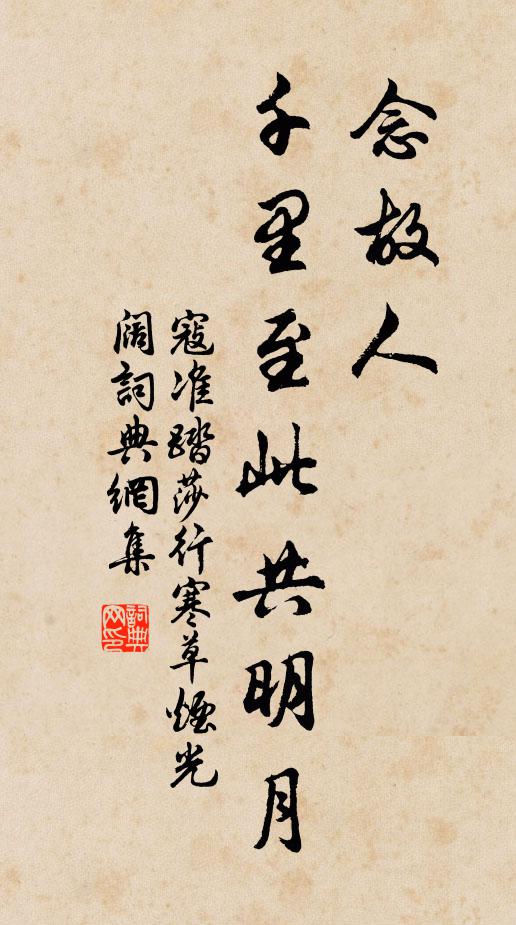 念故人
千里至此共明月
寇准踏莎行寒草煙光
闊詞典網集
詞典
网印